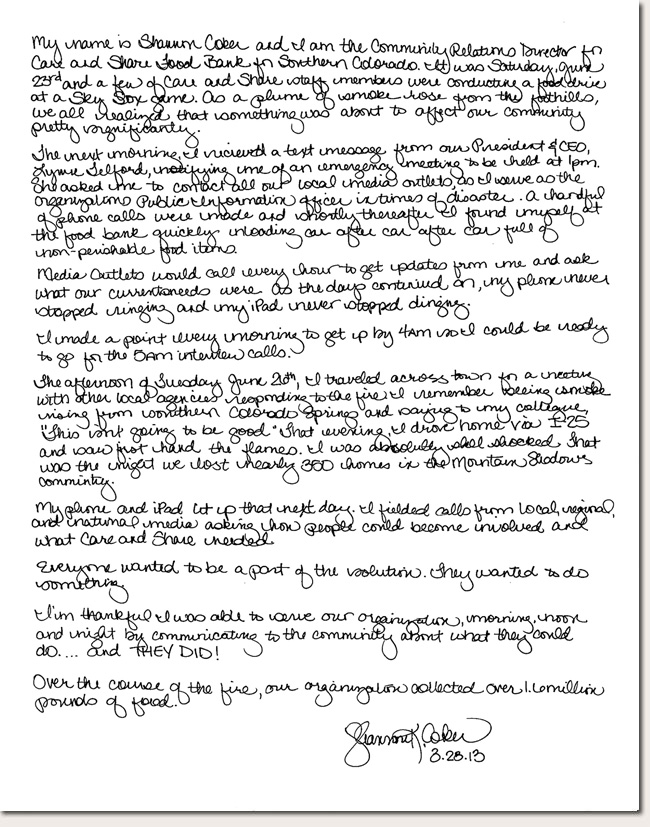 My name is Shannon Coker and I am the Community Relations Director for
Care and Share Food Bank for Southern Colorado. It was Saturday, June
23rd and a few of Care and Share staff members were conducting a food drive
at a Sky Sox game. As a plume of smoke rose from the foothills,
we all realized that something was about to affect our community
pretty significantly.
The next morning, I recieved a text message from our President & CEO,
Lynne Telford, notifying me of an emergency meeting to be held at 1pm.
She asked me to contact all our local media outlets, as I serve as the
organizations Public Information Officer in times of disaster. A handful
of phone calls were made and shortly thereafter I found myself at
the food bank quickly unloading car after car after car full of
non-perishable food items.
Media Outlets would call every hour to get updates from me and ask
what our current needs were. As the days continued on, my phone never
stopped ringing and my iPad never stopped dinging.
I made a point every morning to get up by 4AM so I could be ready
to go for the 5AM interview calls.
The afternoon of Tuesday June 26th, I traveled across town for a meeting
with other local agencies responding to the fire. I remember seeing smoke
rising from northern Colorado Springs and saying to my collegue,
"This isn't going to be good." That evening, I drove home via I-25
and saw first hand the flames. I was absolutely shell shocked. That
was the night we lost nearly 350 homes in the Mountain Shadows
comminty.
My phone and iPad lit up that next day. I fielded calls from local, regional,
and national media asking how people could become involved and
what Care and Share needed.
Everyone wanted to be a part of the solution. They wanted to do
something
I'm thankful I was able to serve our organization, morning, noon
and night by communicating to the community about what they could
do.... and THEY DID!
Over the course of the fire, our organization collected over 1.6 million
pounds of food.
Shannon K. Coker
3.28.13